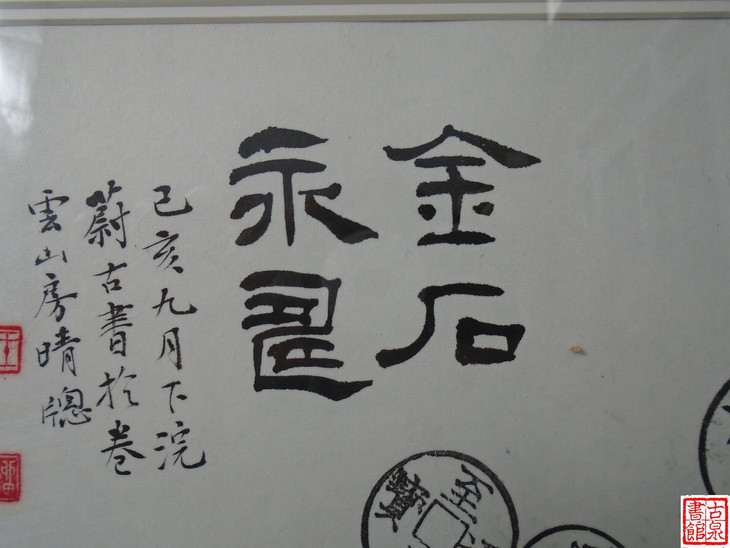 金石
永
己亥九月下浣
蔚古書於卷
雲山房晴牕
至
寶
古泉
書館